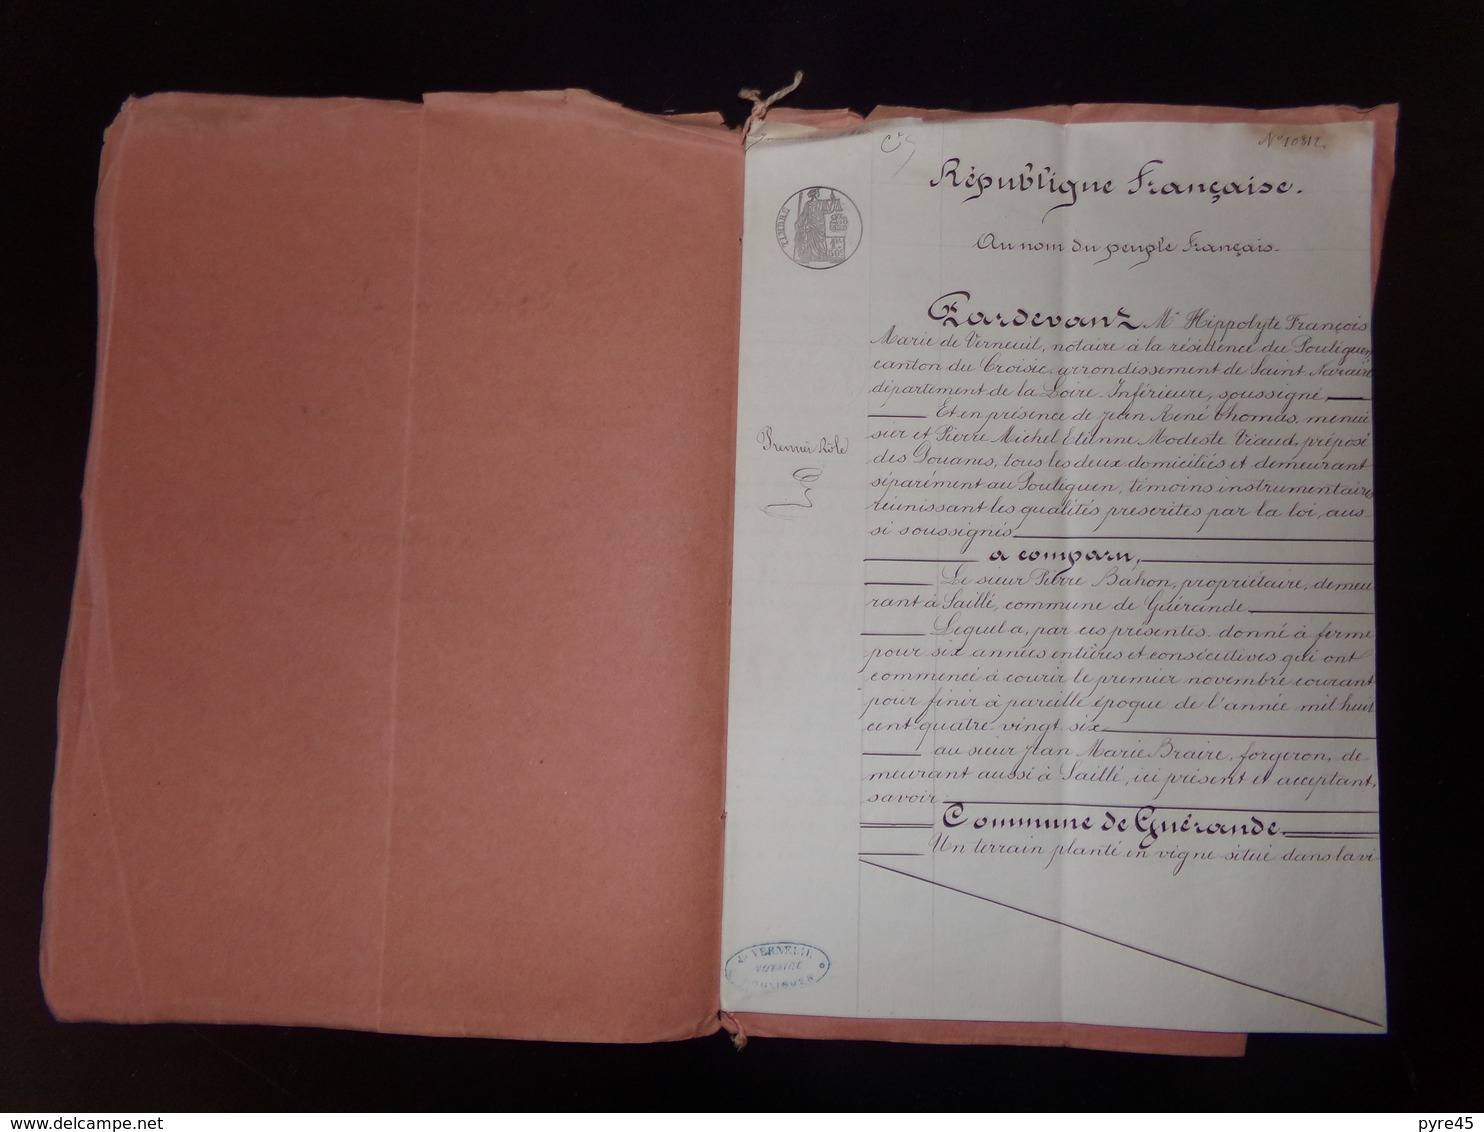 Nº 10812.
République Française.
Au nom du peuple Français.
TIMBRE
Pardevant Me Hippolyte François
Marie de Verneuil, notaire à la résidence du Pouliguen,
canton du Croisic, arrondissement de Saint Nazaire,
département de la Loire-Inférieure, soussigné,
Et en présence de Jean René Thomas, menui
sier et Pierre Michel Etienne Modeste Viaud, préposé
des Douanes, tous les deux domiciliés et demeurant
séparément au Pouliguen, témoins instrumentaires
réunissant les qualités prescrites par la loi, aus-
si soussignés
a comparu,
Le sieur Pierre Bahon, propriétaire, demeu
rant à Saillé, commune de Guérande
Lequel a, par ces présentes, donné à ferme
pour six années entières et consécutives qui ont
commencé à courir le premier novembre courant
pour finir à pareille époque de l'année mil huit
cent quatre vingt six
au sieur Jean Marie Braire, forgeron, de-
meurant aussi à Saillé, ici présent et acceptant,
savoir
Commune de Guérande
Un terrain planté en vigne situé dans la vi-
Premier Rôle
de VERNEUIL
NOTAIRE
POULIGUEN
delcampe.net
pyre45